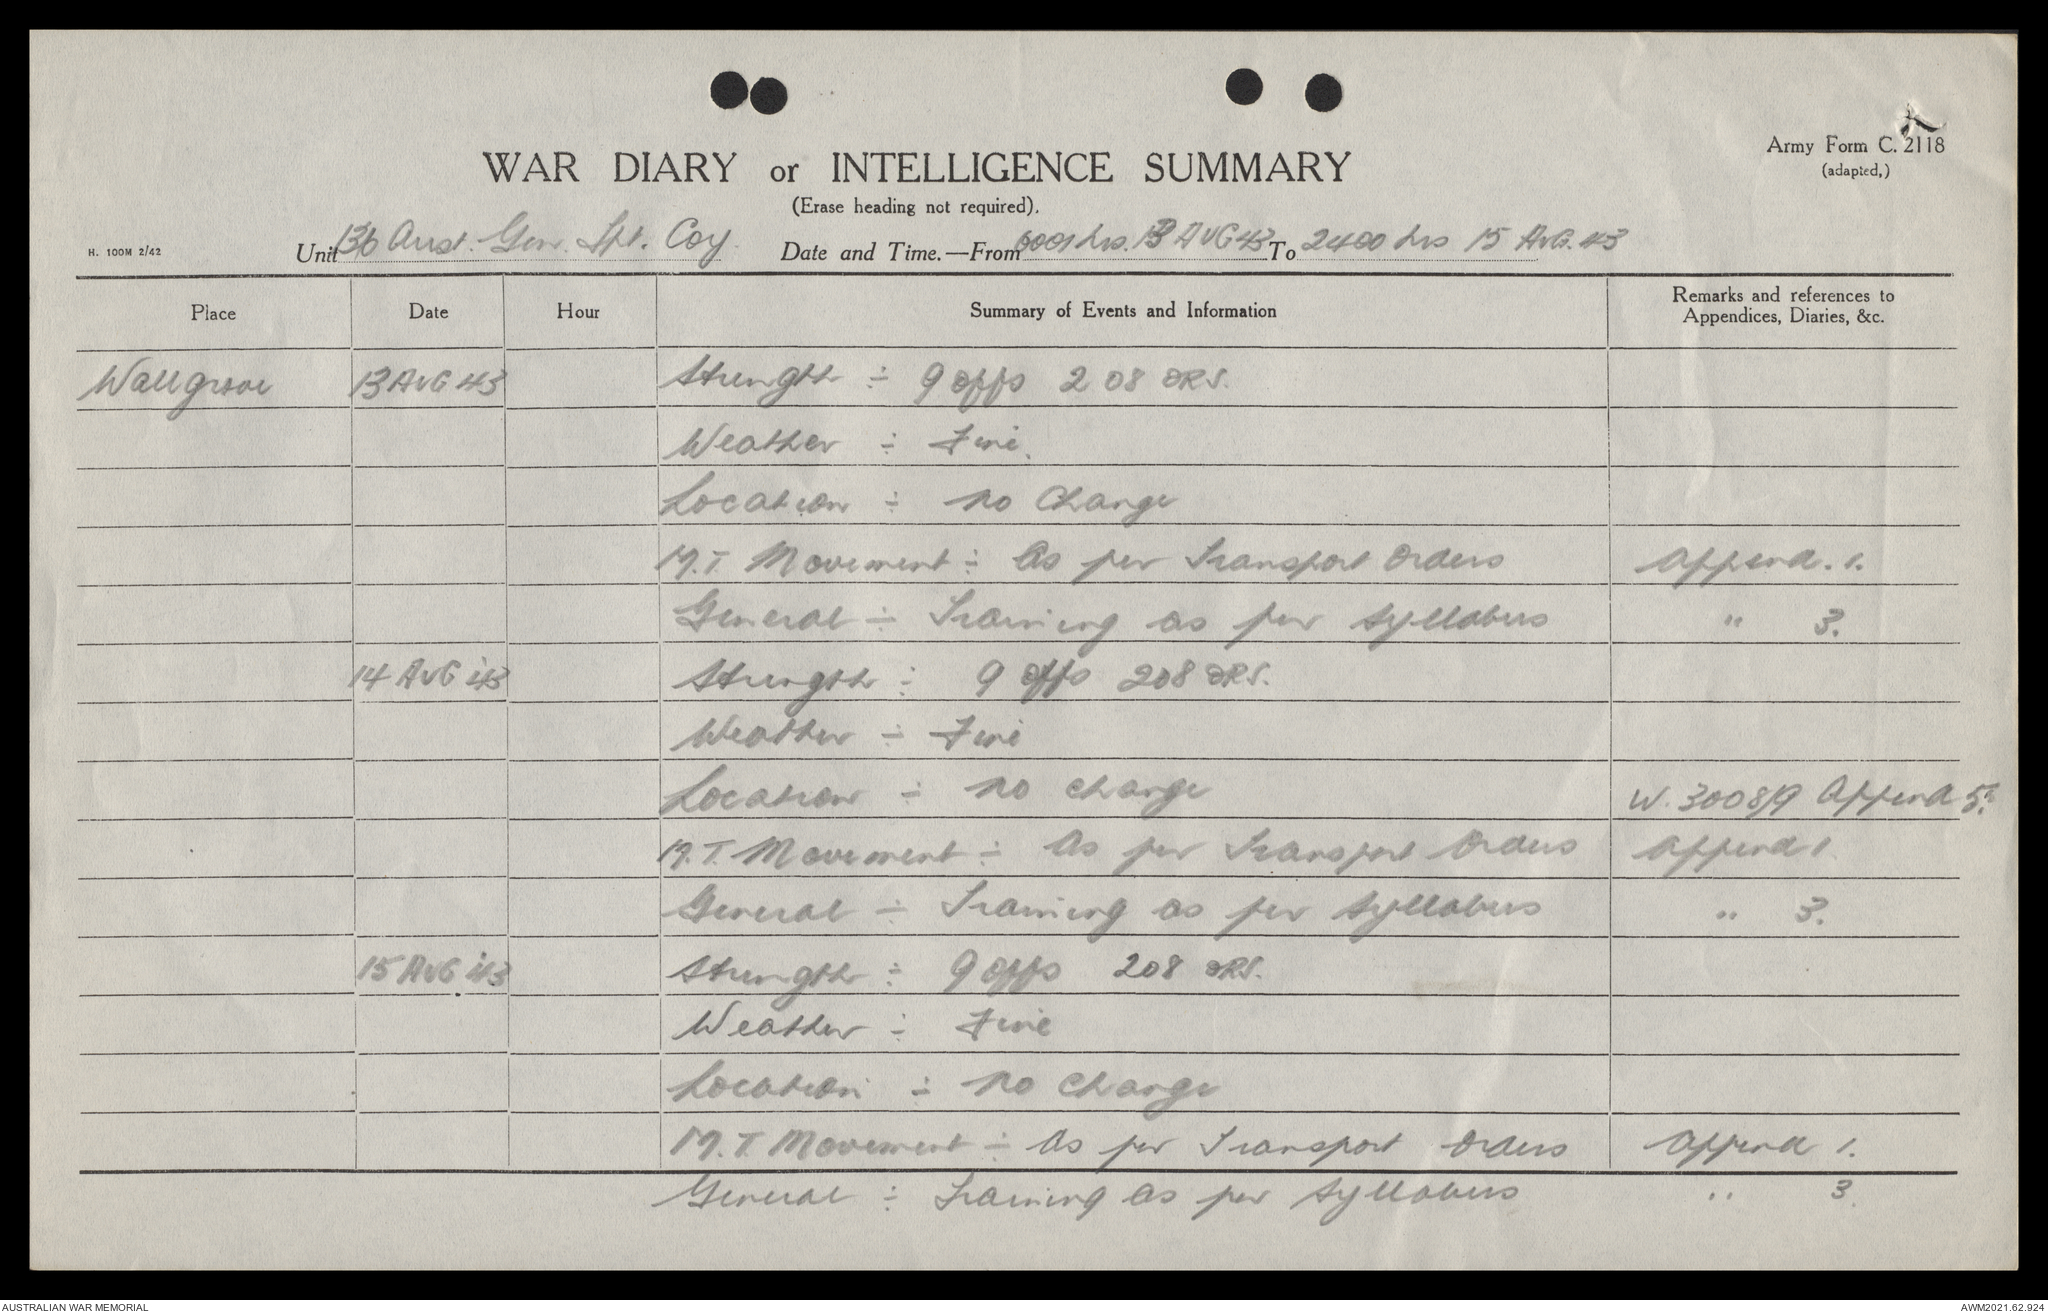 Army Form C. 2118
(adapted,)
WAR DIARY or INTELLIGENCE SUMMARY
(Erase heading not required).
H. 100M 2/42
Unit 136 Aust. Gen. Tpt. Coy. Date and Time.—From 0001 hrs. 13 AUG 43 To 2400 hrs 15 AUG. 43
Place Date Hour Summary of Events and Information Remarks and references to Appendices, Diaries, &c.
Wallgrove 13 AUG 43 Strength ÷ 9 offs 208 ORS.
Weather ÷ Fine.
Location ÷ No Change
M.T. Movement ÷ As per Transport Orders Append. 1.
General ÷ Training as per Syllabus " 3.
14 AUG 43 Strength ÷ 9 offs 208 ORS.
Weather ÷ Fine
Location ÷ No change W. 3008/9 Append 5.
M.T. Movement ÷ As per Transport Orders Append 1
General ÷ Training as per Syllabus " 3.
15 AUG 43 Strength ÷ 9 offs 208 ORS.
Weather ÷ Fine
Location ÷ No Change
M.T. Movement ÷ As per Transport Orders Append 1.
General ÷ Training as per Syllabus " 3.
AUSTRALIAN WAR MEMORIAL
AWM2021.62.924